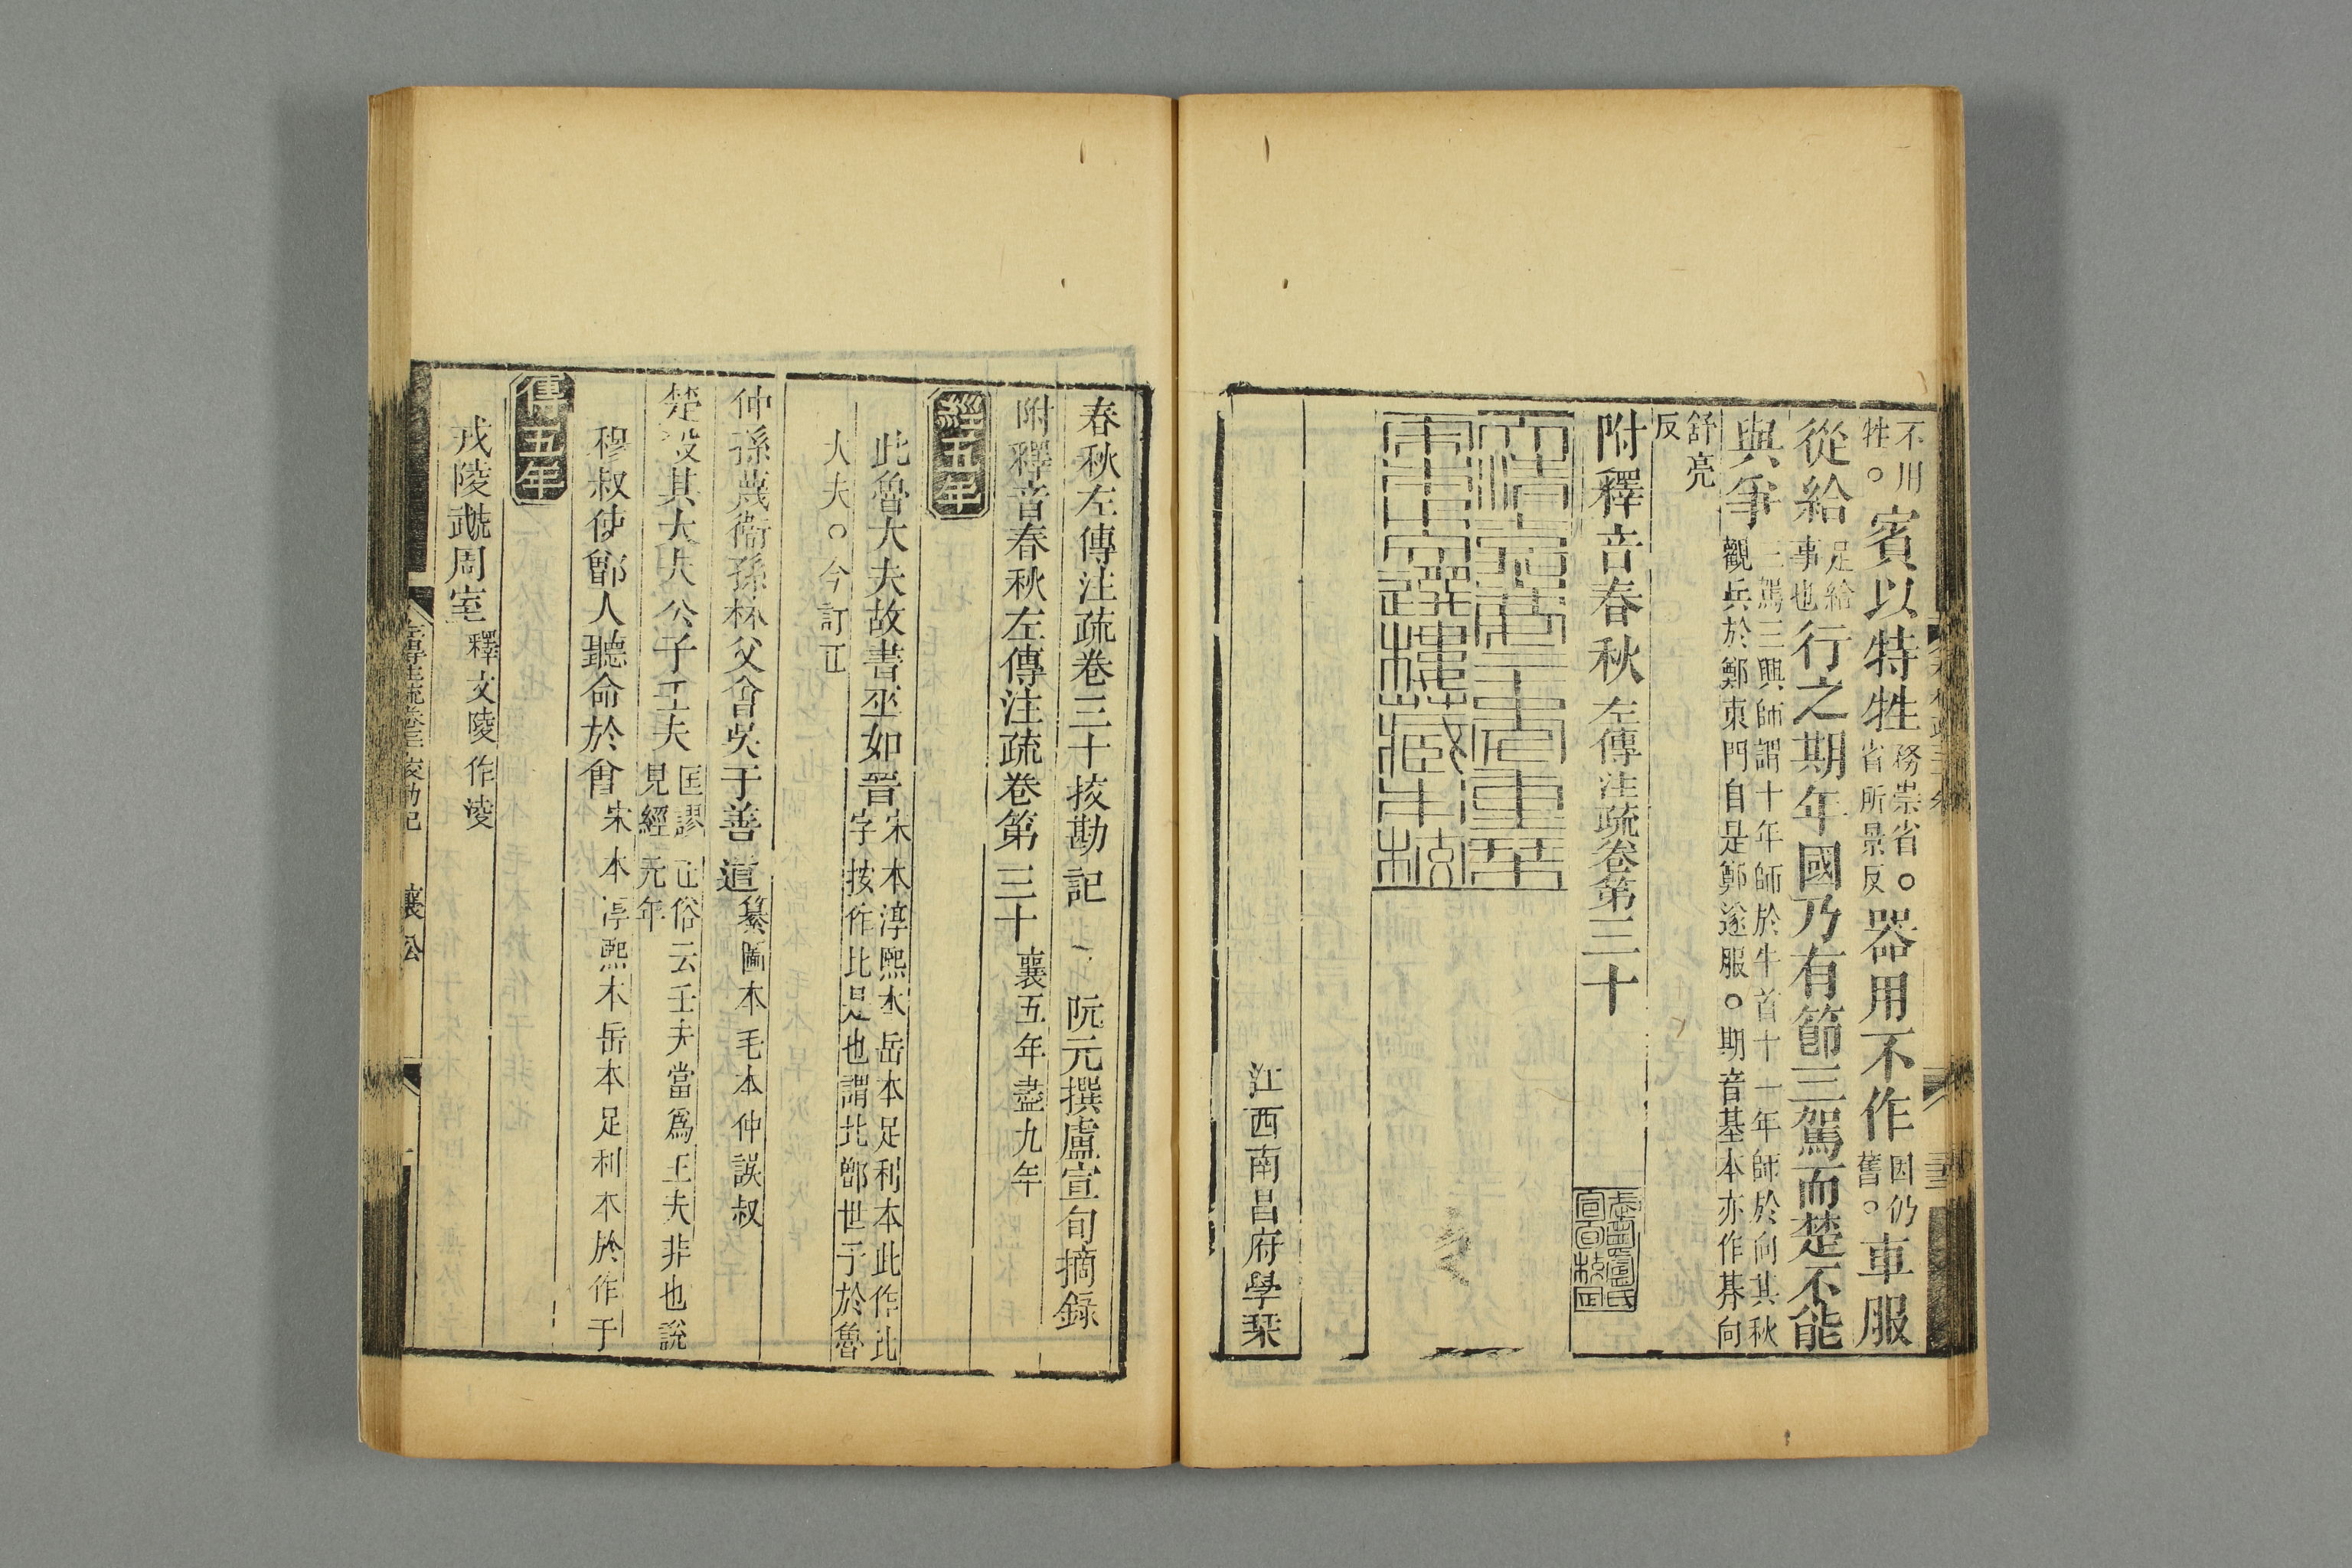 不用
牲。
賓以特牲
務崇省。
省所景反
器用不作
因仍
舊。
車服
從給
足給
事也
行之期年國乃有節三駕而楚不能
與爭
三駕三興師謂十年師於牛首十一年師於向其秋
觀兵於鄭東門自是鄭遂服。期音基本亦作朞向
舒亮
反
附釋音春秋左傳注疏卷第三十
盧氏
宣旬校定
大清嘉慶二十年重栞
選樓藏本校
江西南昌府學栞
春秋左傳注疏卷三十挍勘記
阮元撰盧宣旬摘錄
附釋音春秋左傳注疏卷第三十
襄五年盡九年
經五年
此魯大夫故書巫如晉
宋本淳熙本岳本足利本此作比
字按作比是也謂比鄫世子於魯
大夫。今訂正
仲孫蔑衞孫林父會吳于善道
纂圖本毛本仲誤叔
楚殺其大夫公子壬夫
匡謬正俗云壬夫當爲王夫非也說
見經元年
穆叔使鄫人聽命於會
宋本淳熙本岳本足利本於作于
傳五年
戎陵虣周室
釋文陵作淩
襄公